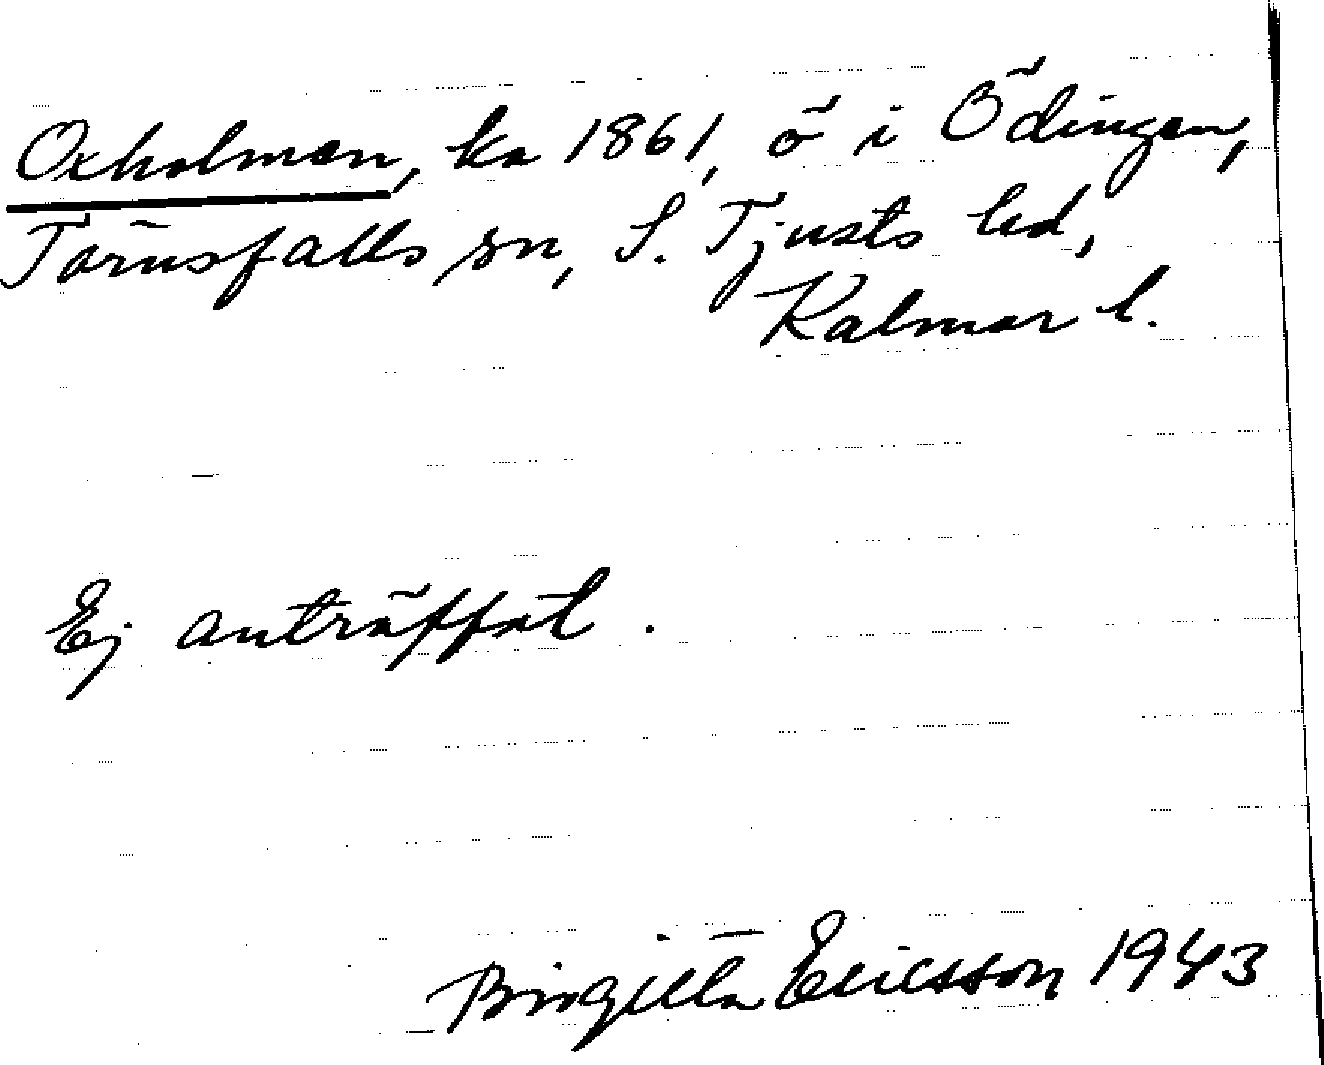 Oxholmen, ka 1861, ö i Ödingen,
Törnsfalls sn, S. Tjusts hd,
Kalmar l.
Ej anträffat.
Birgitta Ericsson 1943